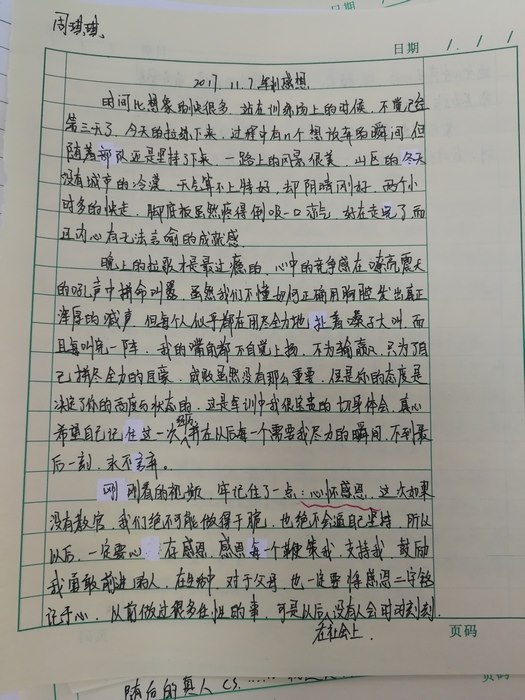 周琪琪
日期 1. / 1
2017.11.7.军训感想
时间比想象的快很多，站在训练场上的时候，不觉已经
第三天了，今天的拉练下来，过程中有n个想放弃的瞬间，但
随着部队还是坚持了下来，一路上的风景很美，山区的冬天
没有城市的冷漠，天气算不上特好，却阴晴刚好，两个小
时多的快走，脚底板虽然疼得倒吸一口凉气，好在走完了而
且内心有无法言喻的成就感.
晚上的拉歌才是最过瘾的，心中的竞争感在嘹亮震天
的吼声中拼命叫嚣，虽然我们不懂如何正确用胸腔发出真正
浑厚的喊声，但每个人似乎都在用尽全力地扯着嗓子大叫，而
且每叫完一阵，我的嘴角都不自觉上扬，不为输赢，只为了自
己拼尽全力的自豪，成败虽然没有那么重要，但是你的态度是
决定了你的高度和状态的，这是军训中我很宝贵的切身体会，真心
希望自己记住这一次经历并在以后每一个需要我尽力的瞬间，不到最
后一刻，永不言弃.
刚刚看的视频，牢记住了一点：心怀感恩，这次如果
没有教官，我们绝不可能做得干脆，也绝不会逼自己坚持，所以
以后，一定要心存感恩，感恩每一个鞭策我，支持我，鼓励
我勇敢前进的人，在生活中，对于父母，也一定要将感恩二字铭
记于心，以前做过很多任性的事，可是以后没有人会时时刻刻
在社会上.
页码
随后的真人CS.……